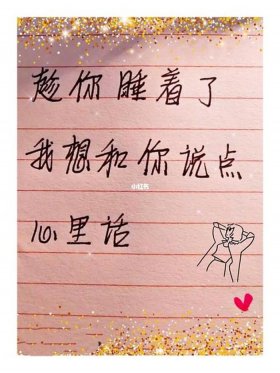 趁你睡着了
我想和你说点
小红书
心里话